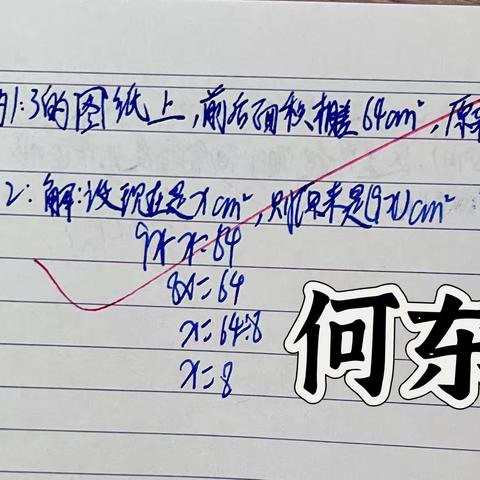 1:3的图纸上,前后面积相差64cm²,原来
2:解:设现在是xcm²,则原来是(9x)cm²
9x-x=64
8x=64
x=64÷8
x=8
何东